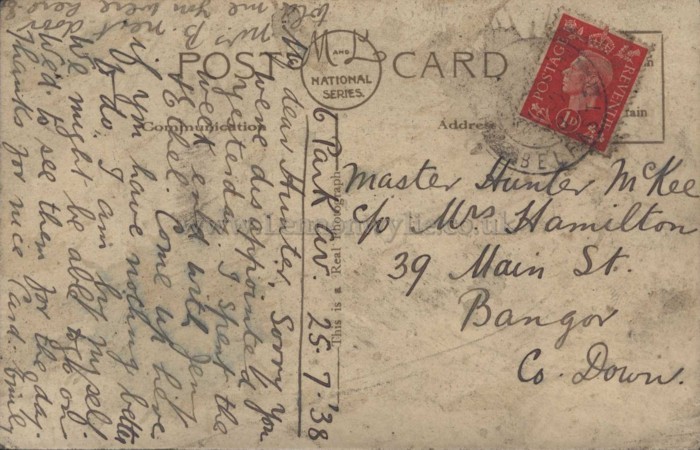 POST CARD
M AND L
NATIONAL
SERIES.
Communication
Address
This is a Real Photograph
POSTAGE
REVENUE
1D
BEL
6 Park Av. 25.7.'38
My dear Hunter, Sorry you
were disappointed
yesterday. I spent the
week end with Jen
& Ethel. Come up here
if you have nothing better
to do. I am by myself.
We might be able to go on
Wed. to see them for the day.
Thanks for nice Card. Emily
Mrs B. next door
told me you were here
Master Hunter McKee
c/o Mrs Hamilton
39 Main St.
Bangor
Co. Down.